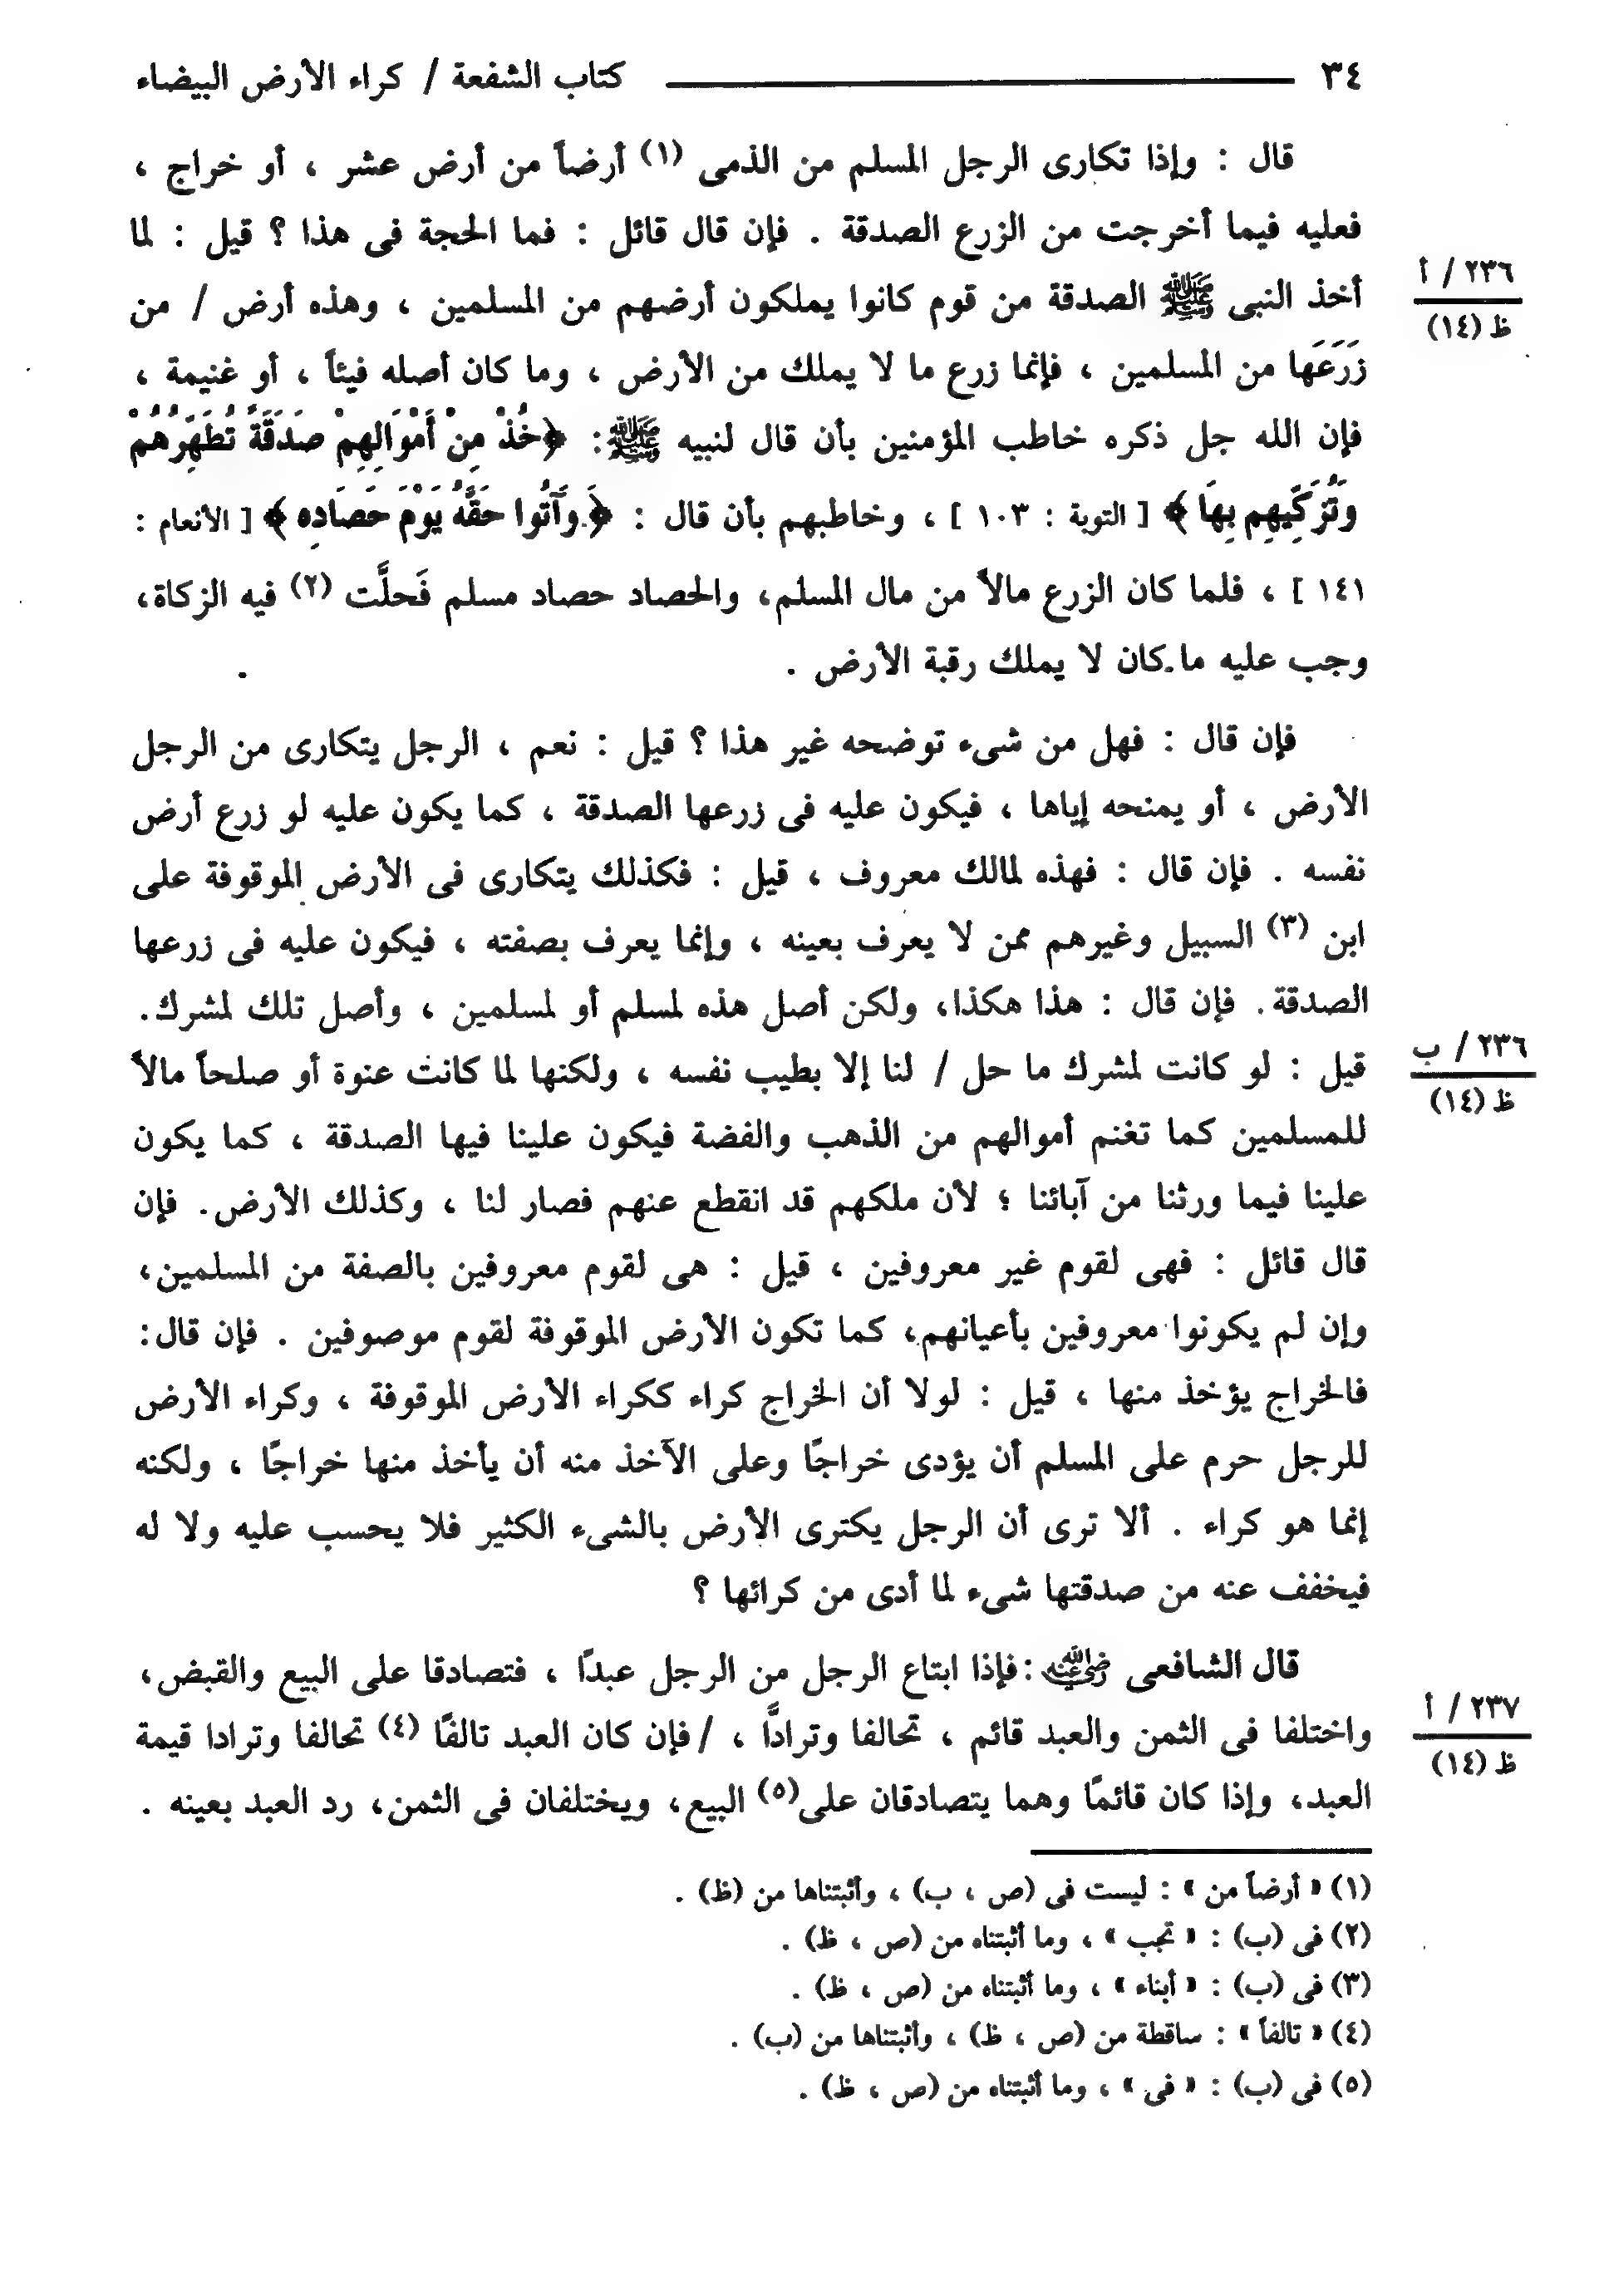 ٣٤ كتاب الشفعة / كراء الأرض البيضاء
قال : وإذا تكارى الرجل المسلم من الذمى (١) أرضاً من أرض عشر ، أو خراج ،
فعليه فيما أخرجت من الزرع الصدقة . فإن قال قائل : فما الحجة فى هذا ؟ قيل : لما
أخذ النبى ﷺ الصدقة من قوم كانوا يملكون أرضهم من المسلمين ، وهذه أرض / من
٢٣٦ / أ
ظ (١٤)
زَرَعَها من المسلمين ، فإنما زرع ما لا يملك من الأرض ، وما كان أصله فيئاً ، أو غنيمة ،
فإن الله جل ذكره خاطب المؤمنين بأن قال لنبيه ﷺ: ﴿خُذْ مِنْ أَمْوَالِهِمْ صَدَقَةً تُطَهِّرُهُمْ
وَتُزَكِّيهِم بِهَا﴾ [ التوبة : ١٠٣ ] ، وخاطبهم بأن قال : ﴿وَآتُوا حَقَّهُ يَوْمَ حَصَادِهِ﴾ [ الأنعام :
١٤١ ] ، فلما كان الزرع مالاً من مال المسلم، والحصاد حصاد مسلم فَحلَّت (٢) فيه الزكاة،
وجب عليه ما كان لا يملك رقبة الأرض .
فإن قال : فهل من شىء توضحه غير هذا ؟ قيل : نعم ، الرجل يتكارى من الرجل
الأرض ، أو يمنحه إياها ، فيكون عليه فى زرعها الصدقة ، كما يكون عليه لو زرع أرض
نفسه . فإن قال : فهذه لمالك معروف ، قيل : فكذلك يتكارى فى الأرض الموقوفة على
ابن (٣) السبيل وغيرهم ممن لا يعرف بعينه ، وإنما يعرف بصفته ، فيكون عليه فى زرعها
الصدقة. فإن قال : هذا هكذا، ولكن أصل هذه لمسلم أو لمسلمين ، وأصل تلك لمشرك.
قيل : لو كانت لمشرك ما حل / لنا إلا بطيب نفسه ، ولكنها لما كانت عنوة أو صلحاً مالاً
٢٣٦ / ب
ظ (١٤)
للمسلمين كما تغنم أموالهم من الذهب والفضة فيكون علينا فيها الصدقة ، كما يكون
علينا فيما ورثنا من آبائنا ؛ لأن ملكهم قد انقطع عنهم فصار لنا ، وكذلك الأرض. فإن
قال قائل : فهى لقوم غير معروفين ، قيل : هى لقوم معروفين بالصفة من المسلمين،
وإن لم يكونوا معروفين بأعيانهم، كما تكون الأرض الموقوفة لقوم موصوفين . فإن قال:
فالخراج يؤخذ منها ، قيل : لولا أن الخراج كراء ككراء الأرض الموقوفة ، وكراء الأرض
للرجل حرم على المسلم أن يؤدى خراجًا وعلى الآخذ منه أن يأخذ منها خراجًا ، ولكنه
إنما هو كراء . ألا ترى أن الرجل يكترى الأرض بالشىء الكثير فلا يحسب عليه ولا له
فيخفف عنه من صدقتها شىء لما أدى من كرائها ؟
قال الشافعى رضي الله عنه : فإذا ابتاع الرجل من الرجل عبدًا ، فتصادقا على البيع والقبض،
واختلفا فى الثمن والعبد قائم ، تحالفا وترادًّا ، / فإن كان العبد تالفًا (٤) تحالفا وترادا قيمة
٢٣٧ / أ
ظ (١٤)
العبد، وإذا كان قائمًا وهما يتصادقان على (٥) البيع، ويختلفان فى الثمن، رد العبد بعينه .
(١) « أرضاً من » : ليست فى (ص ، ب) ، وأثبتناها من (ظ) .
(٢) فى (ب) : « تجب » ، وما أثبتناه من (ص ، ظ) .
(٣) فى (ب) : « أبناء » ، وما أثبتناه من (ص ، ظ) .
(٤) « تالفاً » : ساقطة من (ص ، ظ) ، وأثبتناها من (ب) .
(٥) فى (ب) : « فى » ، وما أثبتناه من (ص ، ظ) .